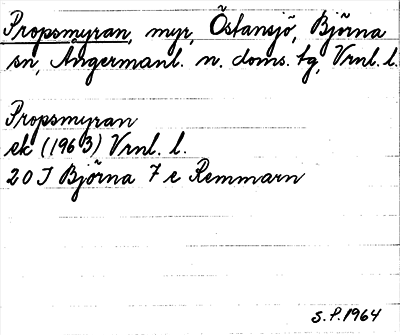 Propsmyran, myr, Östansjö, Björna
sn, Ångermanl. n. doms. tg, Vrnl. l.
Propsmyran
ek (1963) Vrnl. l.
20 J Björna 7 e Remmarn
S.P. 1964